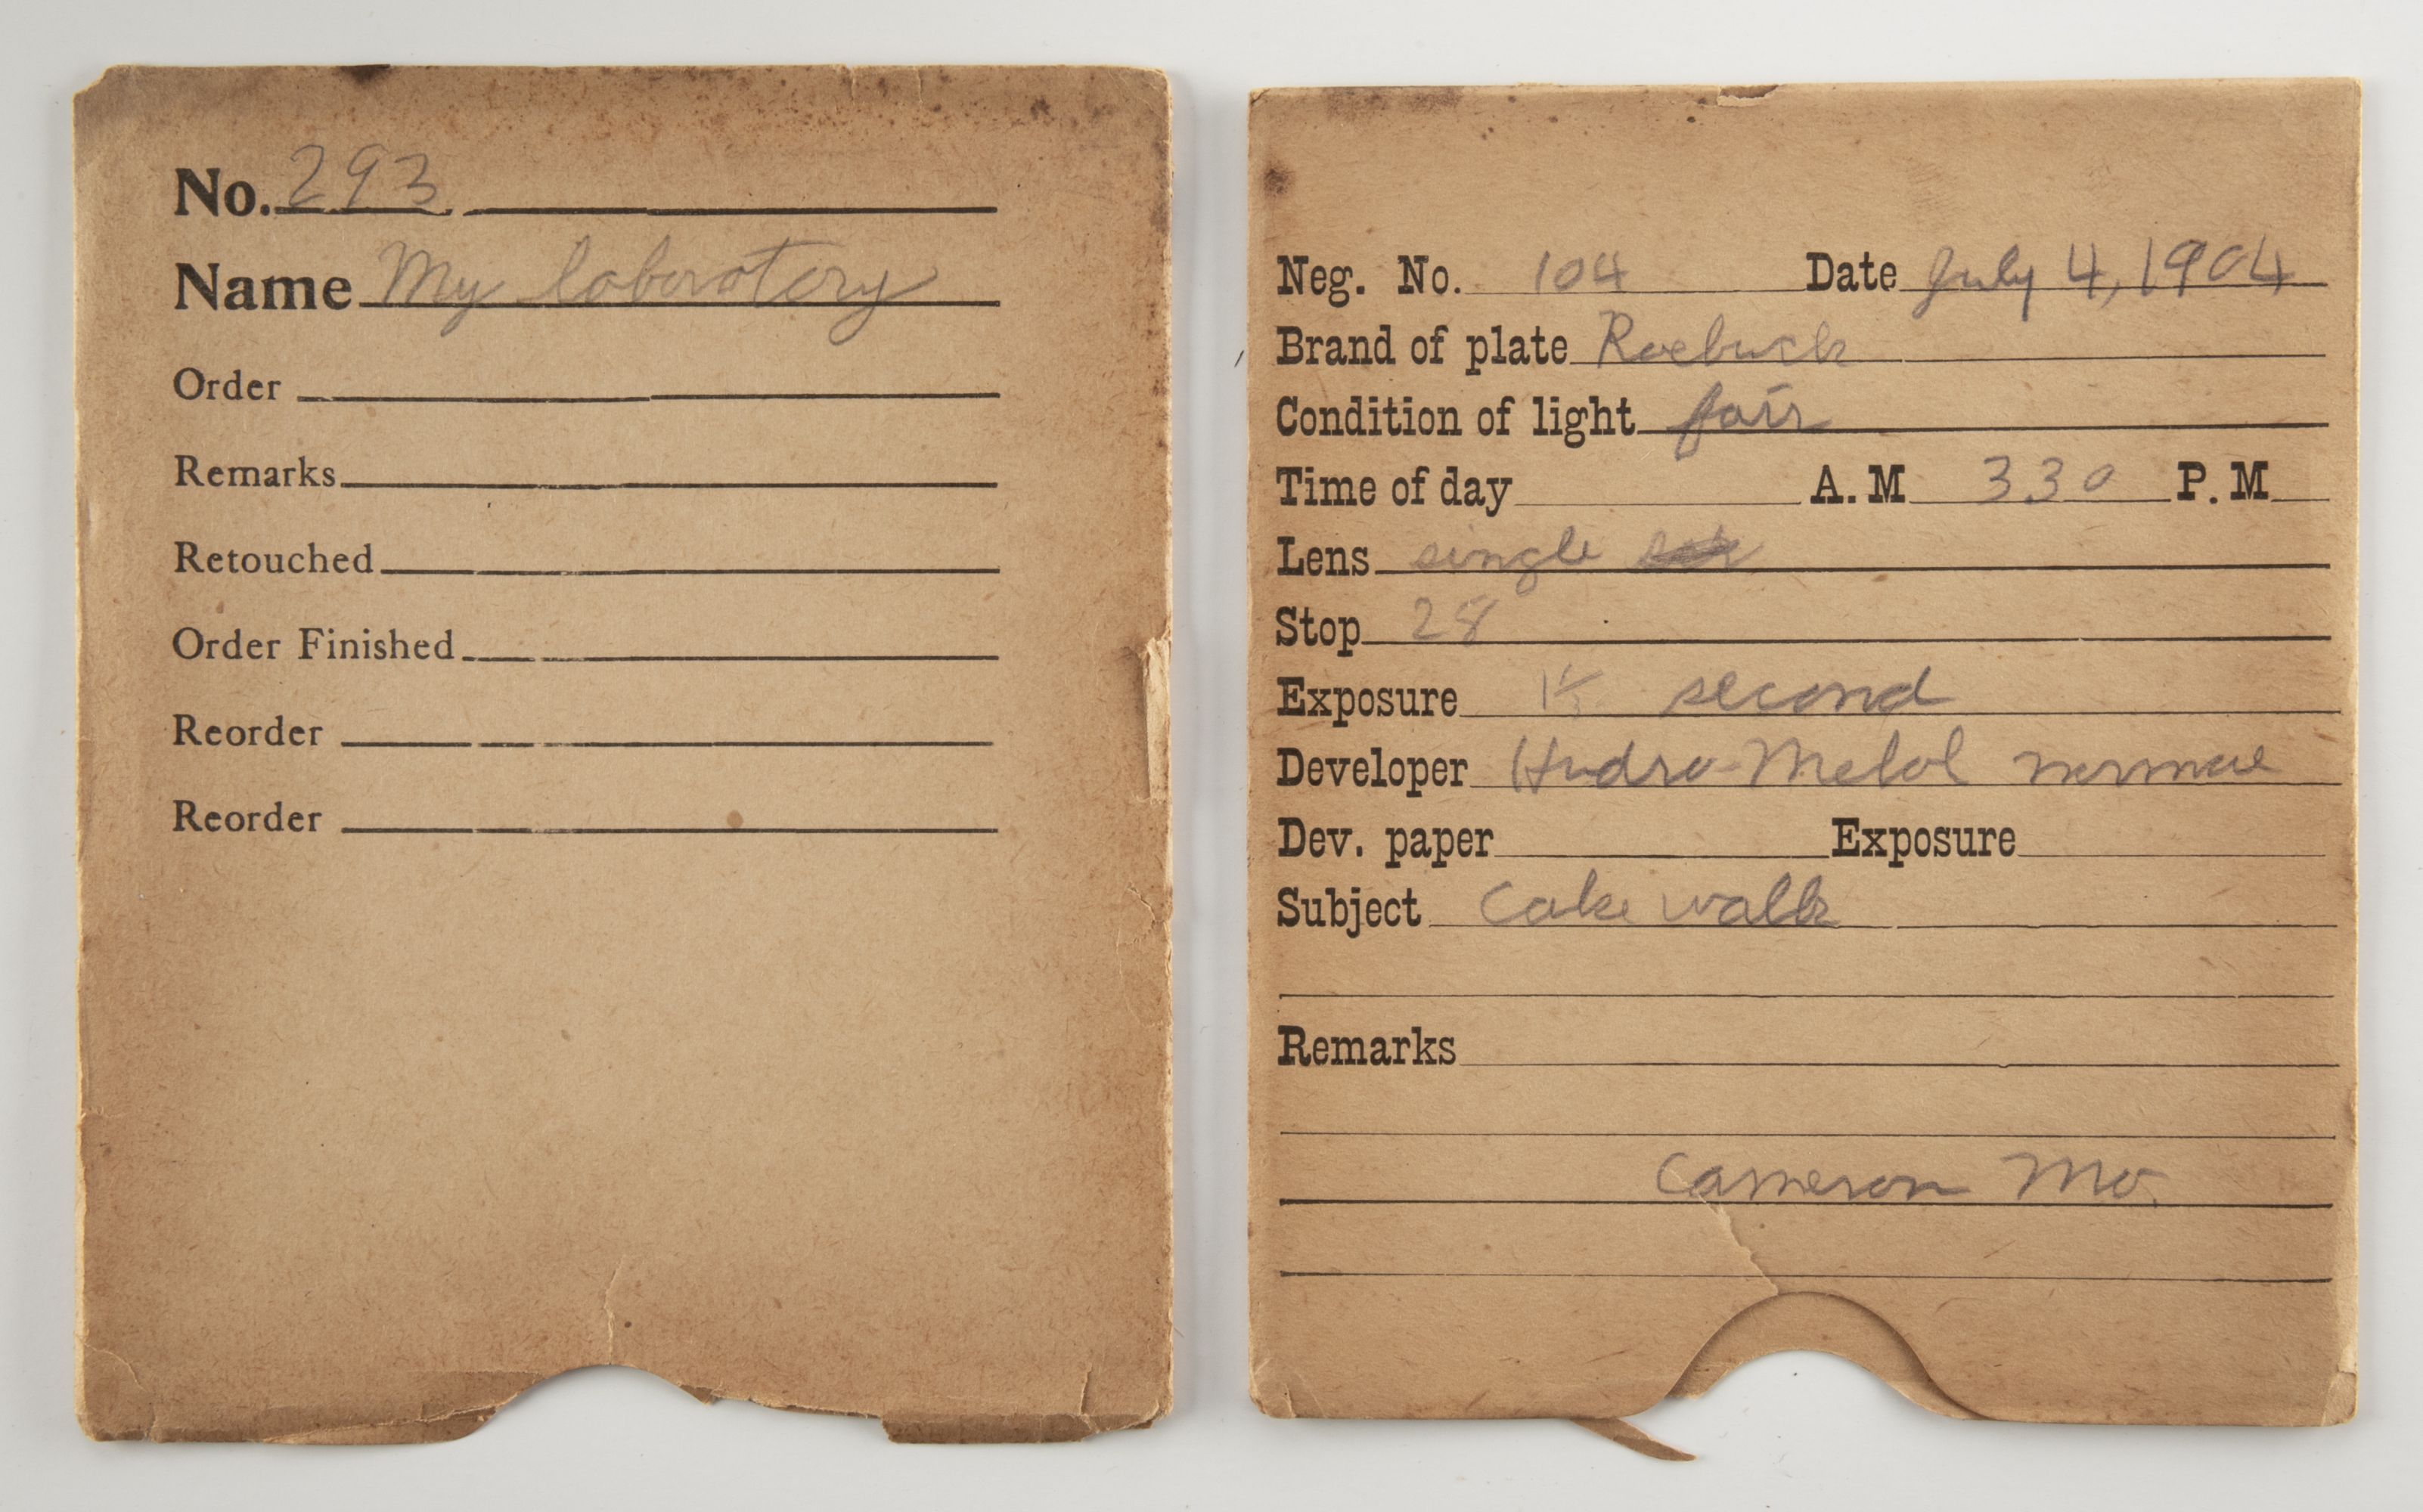 No. 293
Name My laboratory
Order
Remarks
Retouched
Order Finished
Reorder
Reorder
Neg. No. 104 Date July 4, 1904
Brand of plate Roebuck
Condition of light fair
Time of day A.M 330 P.M
Lens single
Stop 28
Exposure second
Developer Hydro-Metol normal
Dev. paper Exposure
Subject Cake walk
Remarks
Cameron Mo.